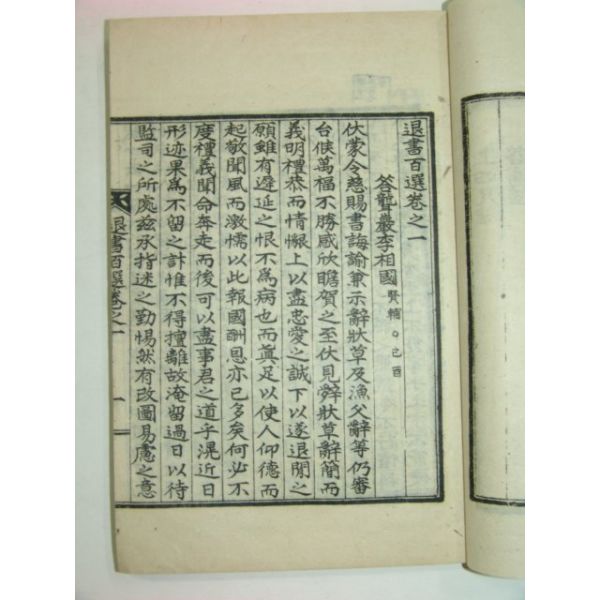 退書百選卷之一
答聾巖李相國 賢輔。己酉
伏蒙令慈賜書誨諭兼示辭狀草及漁父辭等仍審
台候萬福不勝感欣瞻賀之至伏見辭狀草辭簡而
義明禮恭而情懇上以盡忠愛之誠下以遂退閒之
願雖有遲延之恨不爲病也而眞足以使人仰德而
起敬聞風而激懦以此報國酬恩亦已多矣何必不
度禮義聞命奔走而後可以盡事君之道乎滉近日
形迹果爲不留之計惟不得擅離故淹留過日以待
監司之所處玆承指迷之勤惕然有改圖易慮之意
退書百選卷之一
一